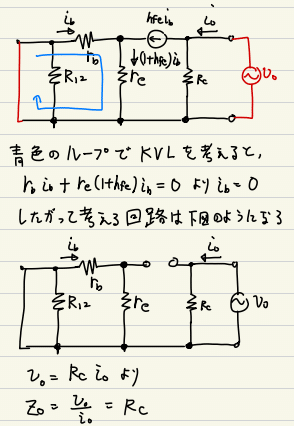 ib hfe ib io
rb ↓(1+hfe)ib
R12 re Rc vo
青色のループでKVLを考えると,
rb ib + re(1+hfe)ib = 0 より ib = 0
したがって考える回路は下図のようになる
ib io
rb
R12 re Rc vo
vo = Rc io より
Zo = vo/io = Rc